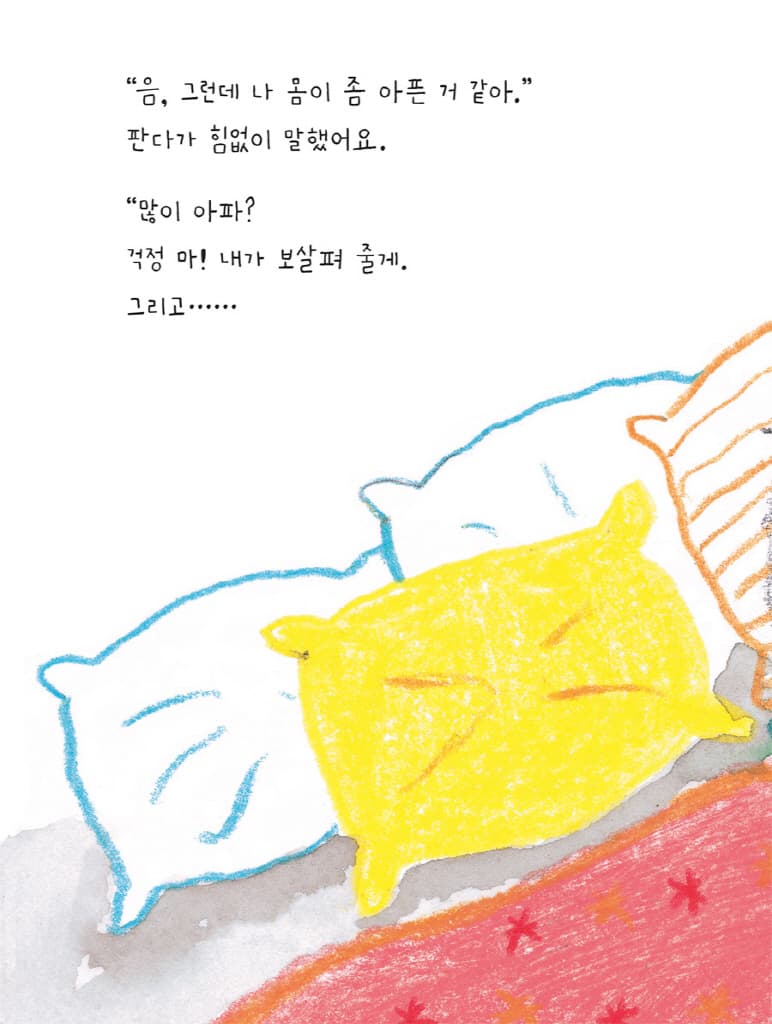 “음, 그런데 나 몸이 좀 아픈 거 같아.”
판다가 힘없이 말했어요.
“많이 아파?
걱정 마! 내가 보살펴 줄게.
그리고……